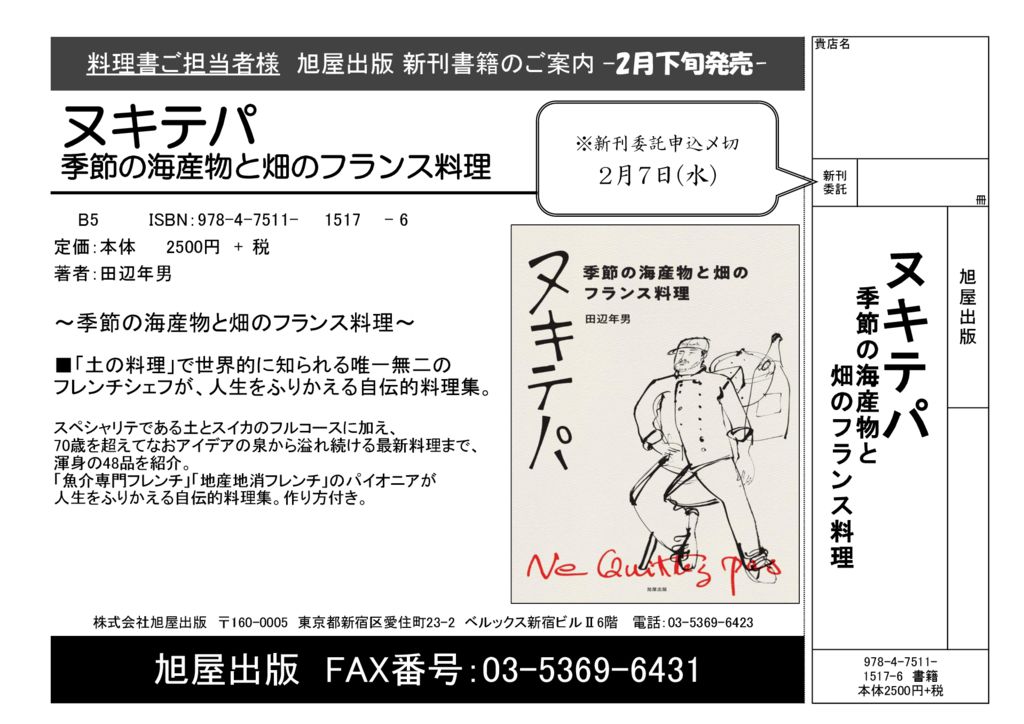 料理書ご担当者様 旭屋出版 新刊書籍のご案内 -2月下旬発売-
ヌキテパ
季節の海産物と畑のフランス料理
※新刊委託申込〆切
2月7日(水)
B5 ISBN:978-4-7511- 1517 - 6
定価:本体 2500円 + 税
著者:田辺年男
～季節の海産物と畑のフランス料理～
■「土の料理」で世界的に知られる唯一無二の
フレンチシェフが、人生をふりかえる自伝的料理集。
スペシャリテである土とスイカのフルコースに加え、
70歳を超えてなおアイデアの泉から溢れ続ける最新料理まで、
渾身の48品を紹介。
「魚介専門フレンチ」「地産地消フレンチ」のパイオニアが
人生をふりかえる自伝的料理集。作り方付き。
ヌキテパ
季節の海産物と畑の
フランス料理
田辺年男
Ne Quittez pas
旭屋出版
株式会社旭屋出版 〒160-0005 東京都新宿区愛住町23-2 ベルックス新宿ビルⅡ6階 電話:03-5369-6423
旭屋出版 FAX番号:03-5369-6431
貴店名
新刊
委託
冊
旭屋出版
ヌキテパ
季節の海産物と
畑のフランス料理
978-4-7511-
1517-6 書籍
本体2500円+税